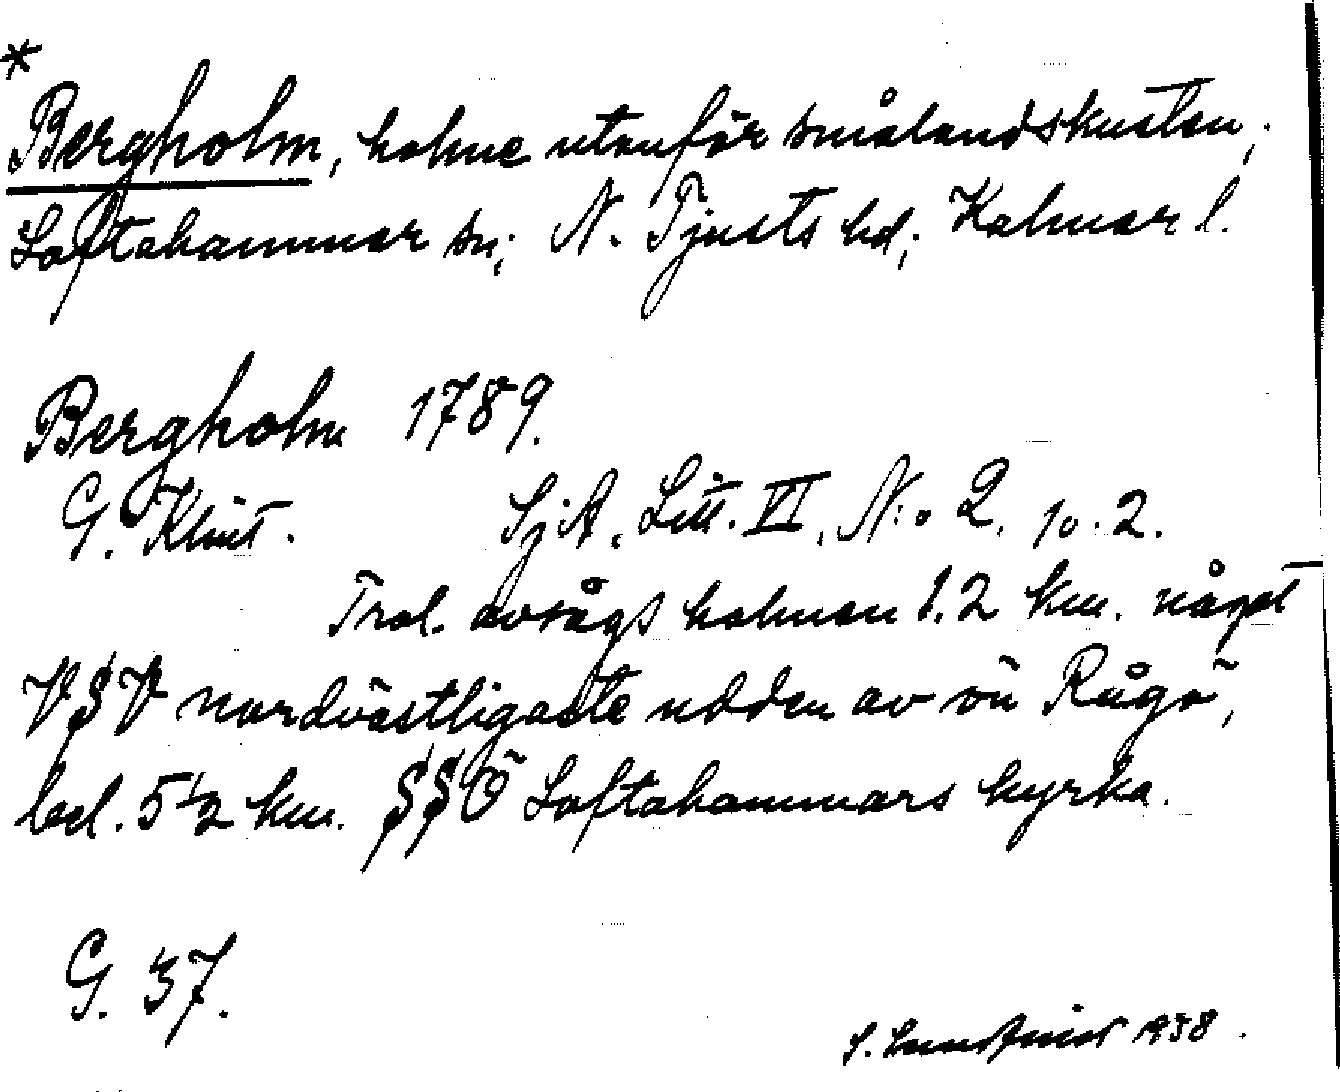 *
Bergholm, holme utanför smålandskusten,
Loftahammar sn; N. Tjusts hd; Kalmar l.
Bergholm 1789.
G. Klint. SjA, Litt. VI, N:o 2. p. 2.
Trol. avsågs holmen 1.2 km. något
VSV nordvästligaste udden av ön Rågö,
bel. 5½ km. SSÖ Loftahammars kyrka.
G. 37.
1938.